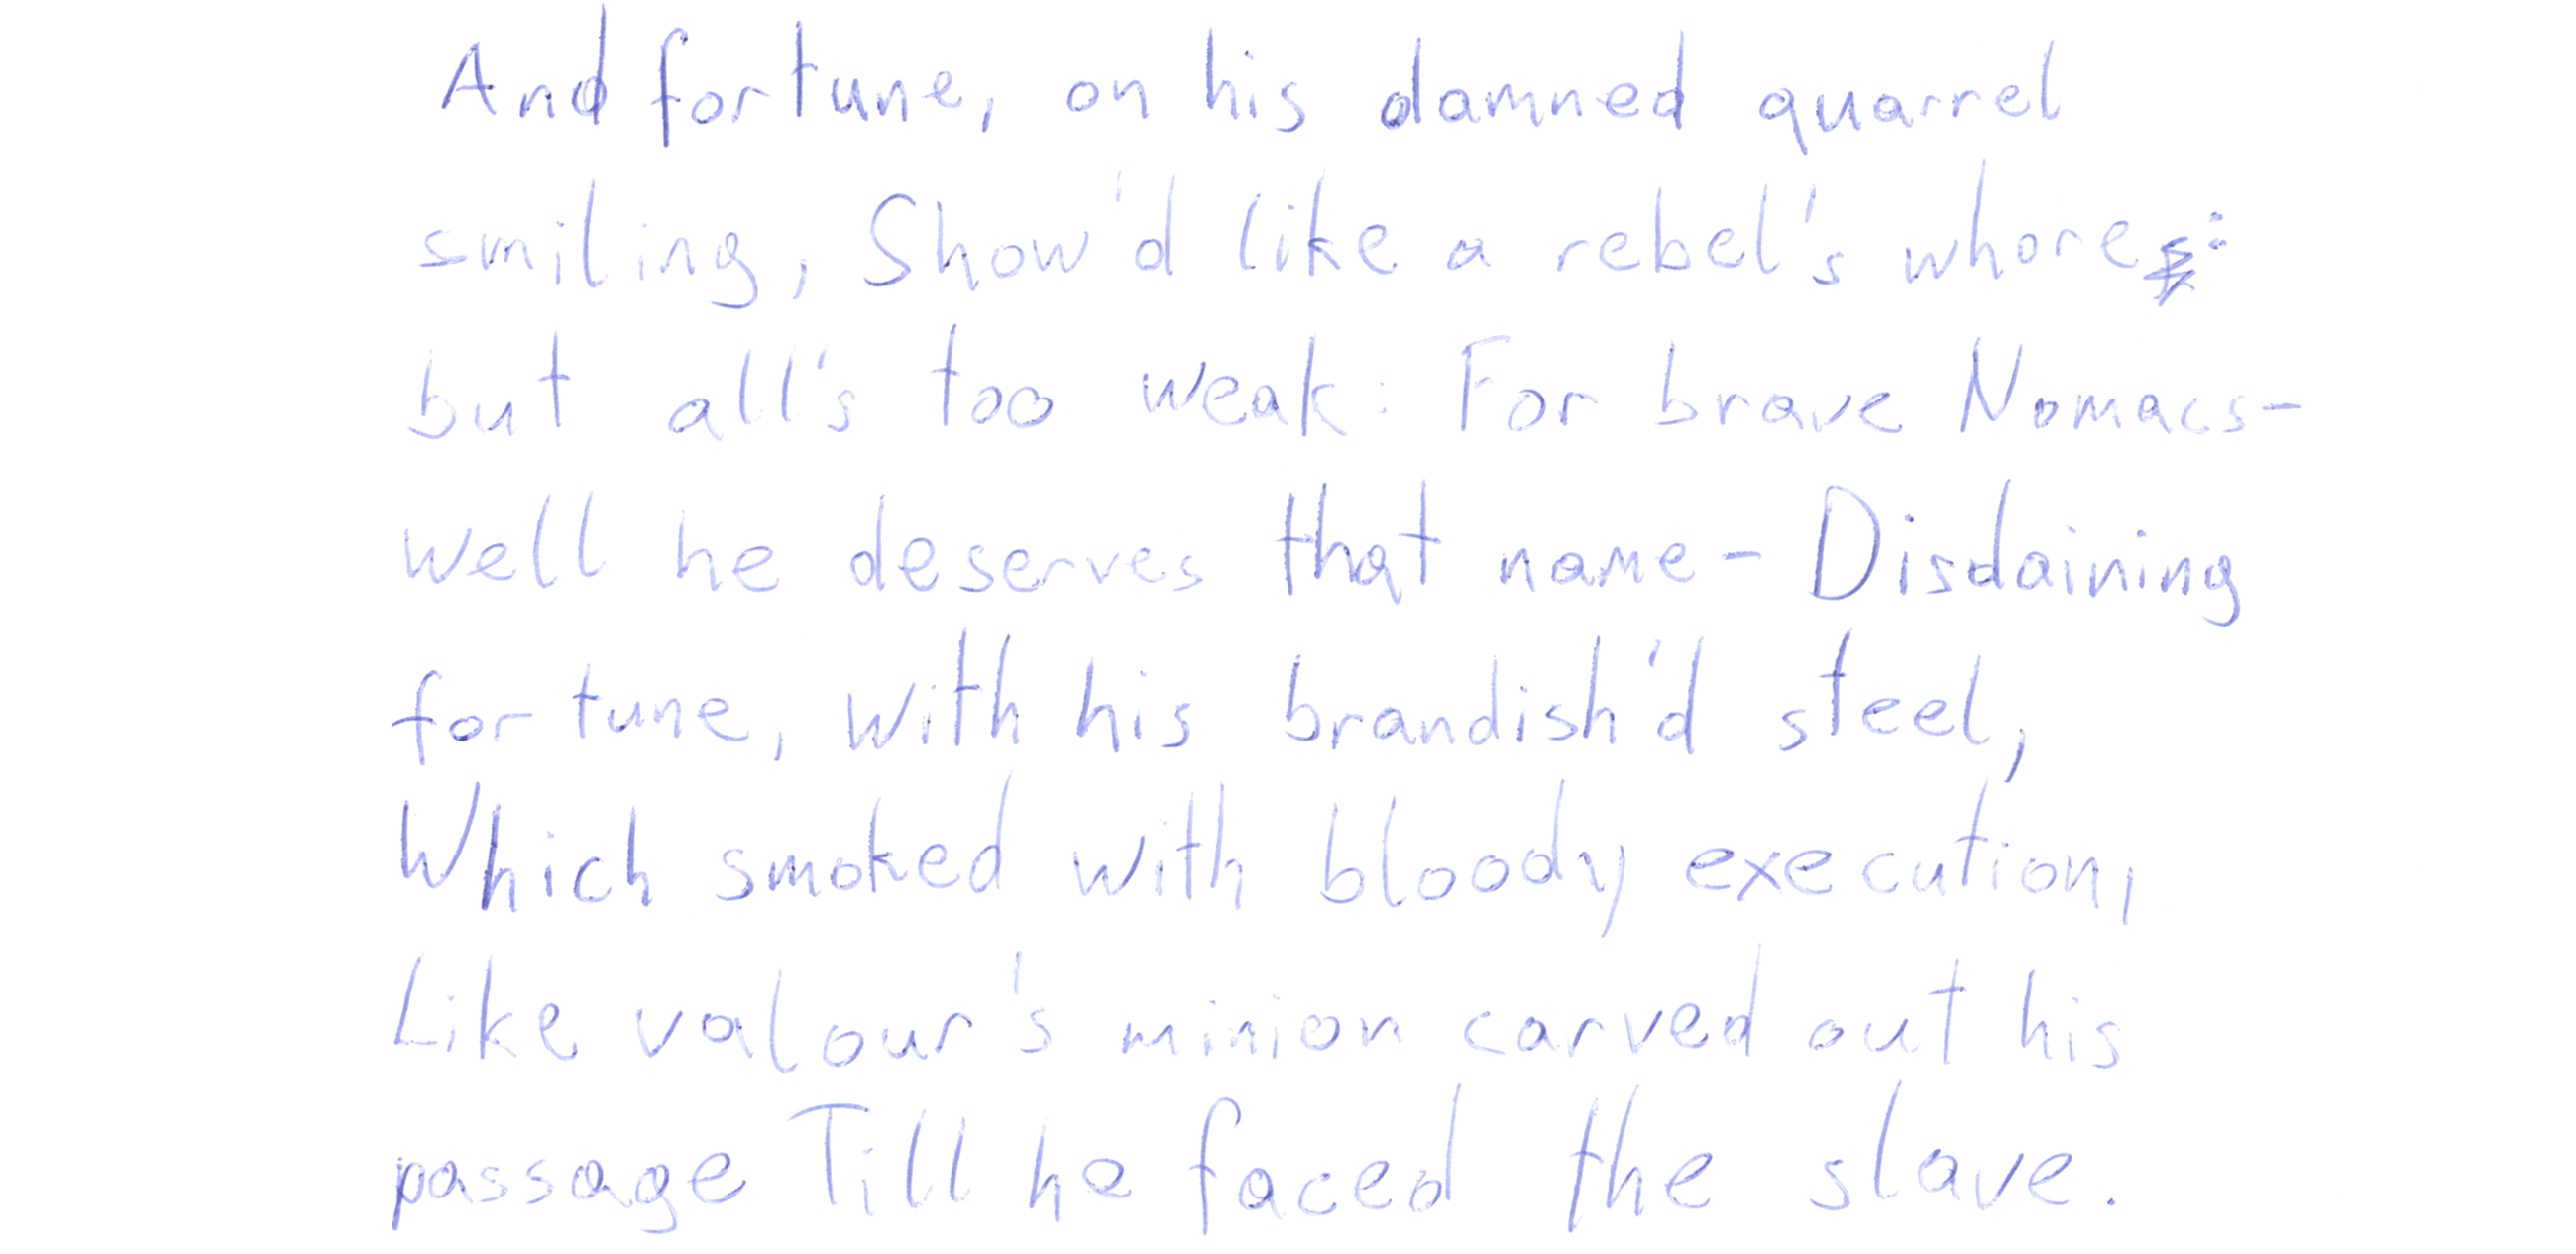 And fortune, on his damned quarrel
smiling, Show'd like a rebel's whore:
but all's too weak: For brave Nomacs-
well he deserves that name - Disdaining
fortune, with his brandish'd steel,
Which smoked with bloody execution,
Like valour's minion carved out his
passage Till he faced the slave.